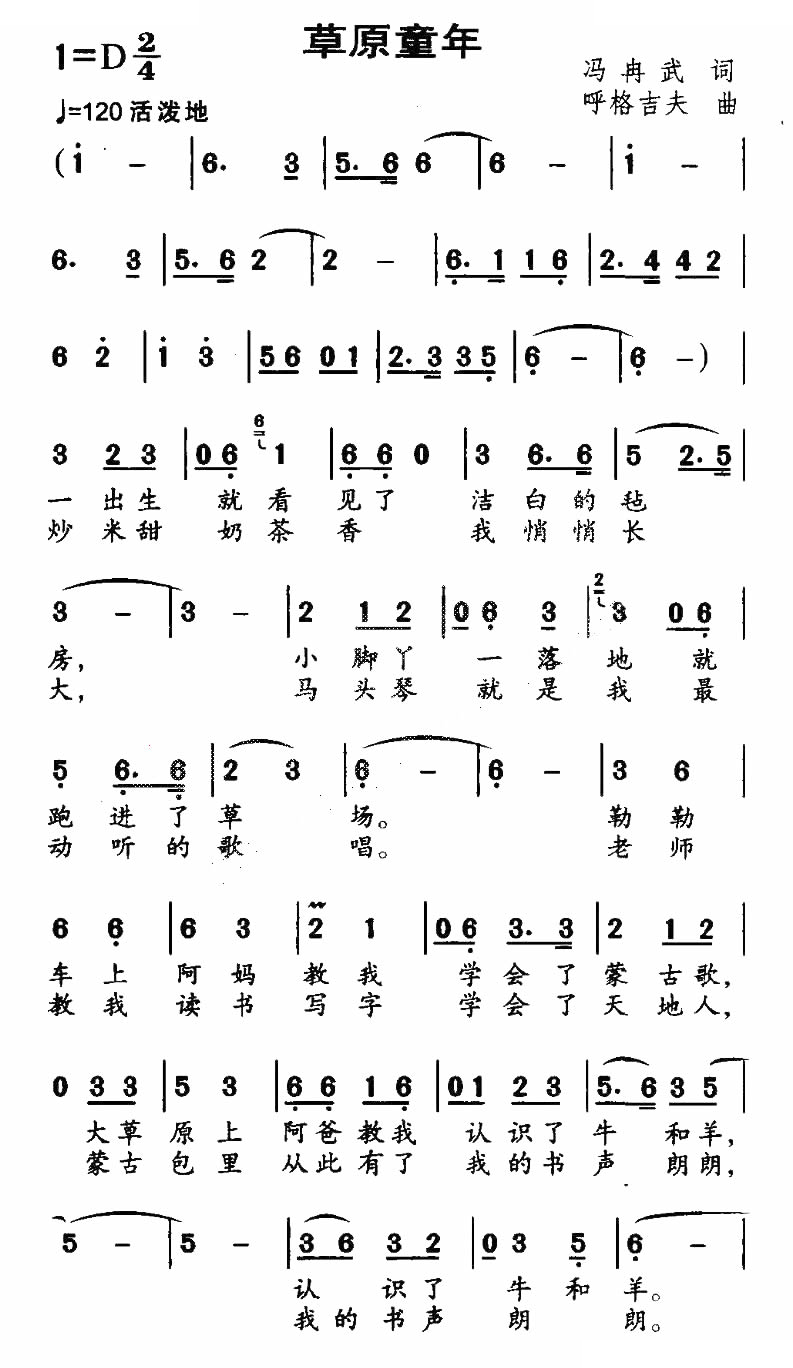 草原童年
1=D 2/4
♩=120 活泼地
冯冉武 词
呼格吉夫 曲
(i̇ – | 6. 3 | 5. 6 6 | 6 – | i̇ – |
6. 3 | 5. 6 2 | 2 – | 6̣. 1 1 6̣ | 2. 4 4 2 |
6 2̇ | i̇ 3̇ | 5 6 0 1 | 2. 3 3 5̣ | 6̣ – | 6̣ –) |
3 2 3 | 0 6̣ 6 1 | 6̣ 6̣ 0 | 3 6. 6 | 5 2. 5 |
一 出生 就看 见了 洁 白的毡
炒 米甜 奶茶 香 我 悄悄长
3 – | 3 – | 2 1 2 | 0 6̣ 3 | 2 3 0 6̣ |
房, 小 脚丫 一落 地就
大, 马 头琴 就是 我最
5̣ 6̣. 6̣ | 2 3 | 6̣ – | 6̣ – | 3 6 |
跑 进了 草 场。 勒勒
动 听的 歌 唱。 老师
6 6̣ | 6 3 | 2 1 | 0 6̣ 3. 3 | 2 1 2 |
车上 阿妈 教我 学会了 蒙 古歌,
教我 读书 写字 学会了 天 地人,
0 3 3 | 5 3 | 6̣ 6̣ 1 6̣ | 0 1 2 3 | 5. 6 3 5 |
大草 原上 阿爸教我 认识了 牛 和羊,
蒙古 包里 从此有了 我的书 声 朗朗,
5 – | 5 – | 3 6 3 2 | 0 3 5̣ | 6̣ – |
认 识了 牛和 羊。
我的 书声 朗 朗。